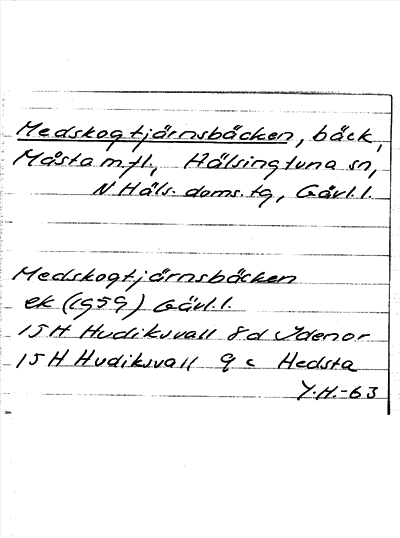 Medskogtjärnsbäcken, bäck,
Måsta m.fl., Hälsingtuna sn,
N Häls. doms.tg, Gävl.l.
Medskogtjärnsbäcken
ek (1959) Gävl.l.
15H Hudiksvall 8d Idenor
15H Hudiksvall 9c Hedsta
Y.H.-63